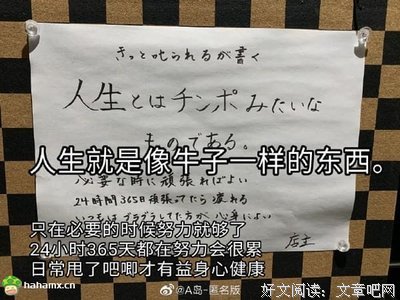 きっと叱られるが書く
人生とはチンポみたいな
ものである。
人生就是像牛子一样的东西。
必要な時に頑張ればよい
24時間365日頑張ってたら疲れる
只在必要的时候努力就够了
24小时365天都在努力会很累
日常甩了吧唧才有益身心健康
店主
hahamx.cn
@A岛-匿名版
好文阅读：文章吧网